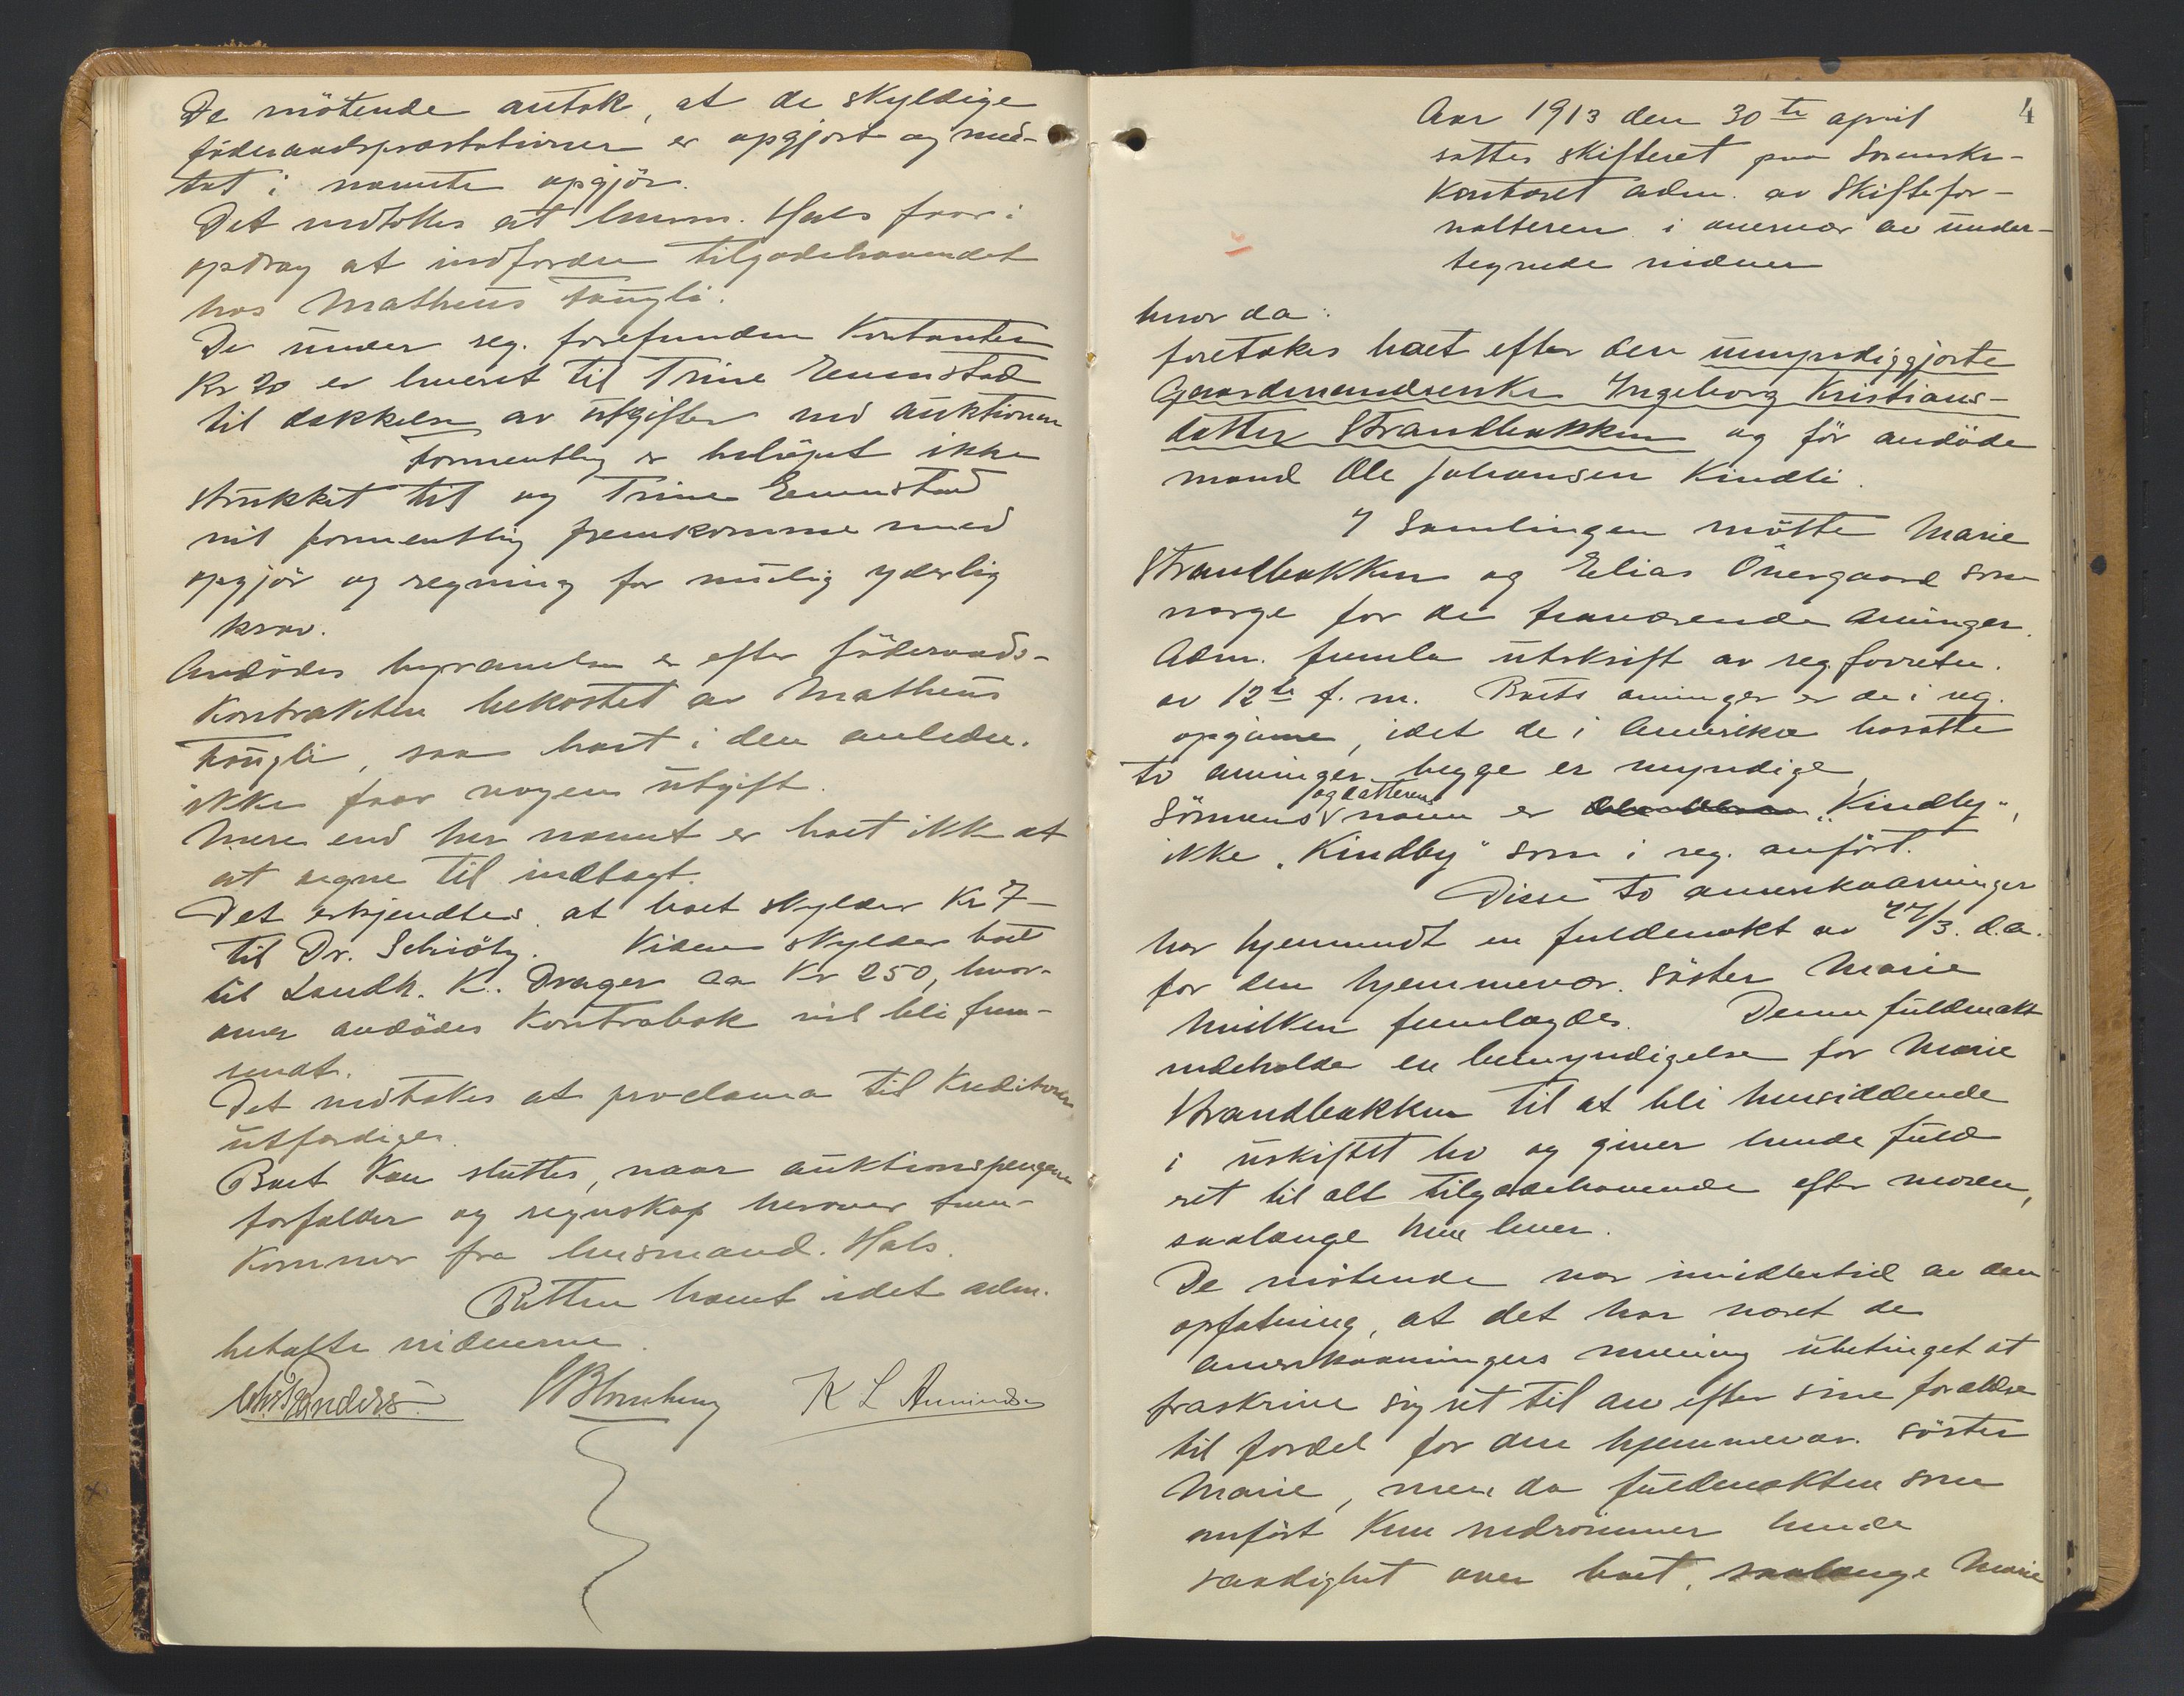 De mötende antok, at de skyldige
föderaadspræstationer er opgjort og med-
tat i nævnte opgjör.
Det vedtokes at lensm. Hals faar i
opdrag at indfordre tilgodehavendet
hos Matheus Tougli.
De under reg. forefundne Kontanter
Kr 20 er leveret til Trine Evenstad
til dækkelse av utgifter ved auktionen
Formentlig er belöpet ikke
strukket til og Trine Evenstad
vil formentlig fremkomme med
opgjör og regning for mulig yderlig
krav.
Avdödes begravelse er efter föderaads-
Kontrakten bekostet av Matheus
Tougli, saa boet i den anledn.
ikke faar nogen utgift.
Mere end her nævnt er boet ikke at
at regne til indtægt.
Det erkjendtes at boet skylder Kr 7 -
til Dr. Schiötz. Videre skylder boet
til Landh. K. Drager ca Kr 250, hvor-
over avdödes Kontrabok vil bli frem-
sendt.
Det vedtokes at proclama til Kreditorer
utfærdiges.
Boet kan sluttes, naar auktionspengene
forfalder og regnskap herover frem-
kommer fra lensmand. Hals.
Retten hævet idet adm.
betalte vidnerne.
K L Amundsen
4
Aar 1913 den 30te april
sattes skifteret paa Sorenskr-
Kontoret adm. av Skiftefor-
valteren i overvær av under-
tegnede vidner
hvor da:
foretokes boet efter den umyndiggjorte
Gaardmandsenke Ingeborg Kristians-
datter Strandbakken og för avdöde
mand Ole Johansen Kindli.
I Samlingen mötte Marie
Strandbakken og Elias Övergaard som
verge for de fraværende arvinger.
Adm. fremla utskrift av reg. forretn.
av 12te f. m. Boets arvinger er de i reg.
opgivne, idet de i Amerika bosatte
to arvinger begge er myndige,
og datterens
Sönnens navn er "Kindley",
ikke "Kindby" som i reg. anfört.
Disse to amerikaarvinger
har hjemsendt en fuldmakt av 27/3. d.a.
for den hjemmevær. söster Marie
hvilken fremlagdes. Denne fuldmakt
indeholder en bemyndigelse for Marie
Strandbakken til at bli hensiddende
i uskiftet bo og giver hende fuld
ret til alt tilgodehavende efter moren,
saalænge hun lever.
De mötende var imidlertid av den
opfatning, at det har været de
amerikaarvingers mening ubetinget at
fraskrive sig ret til arv efter sine forældre
til fordel for den hjemmevær. söster
Marie, men da fuldmakten som
anfört kun indrömmer hende
raadighet over boet, saalænge Marie